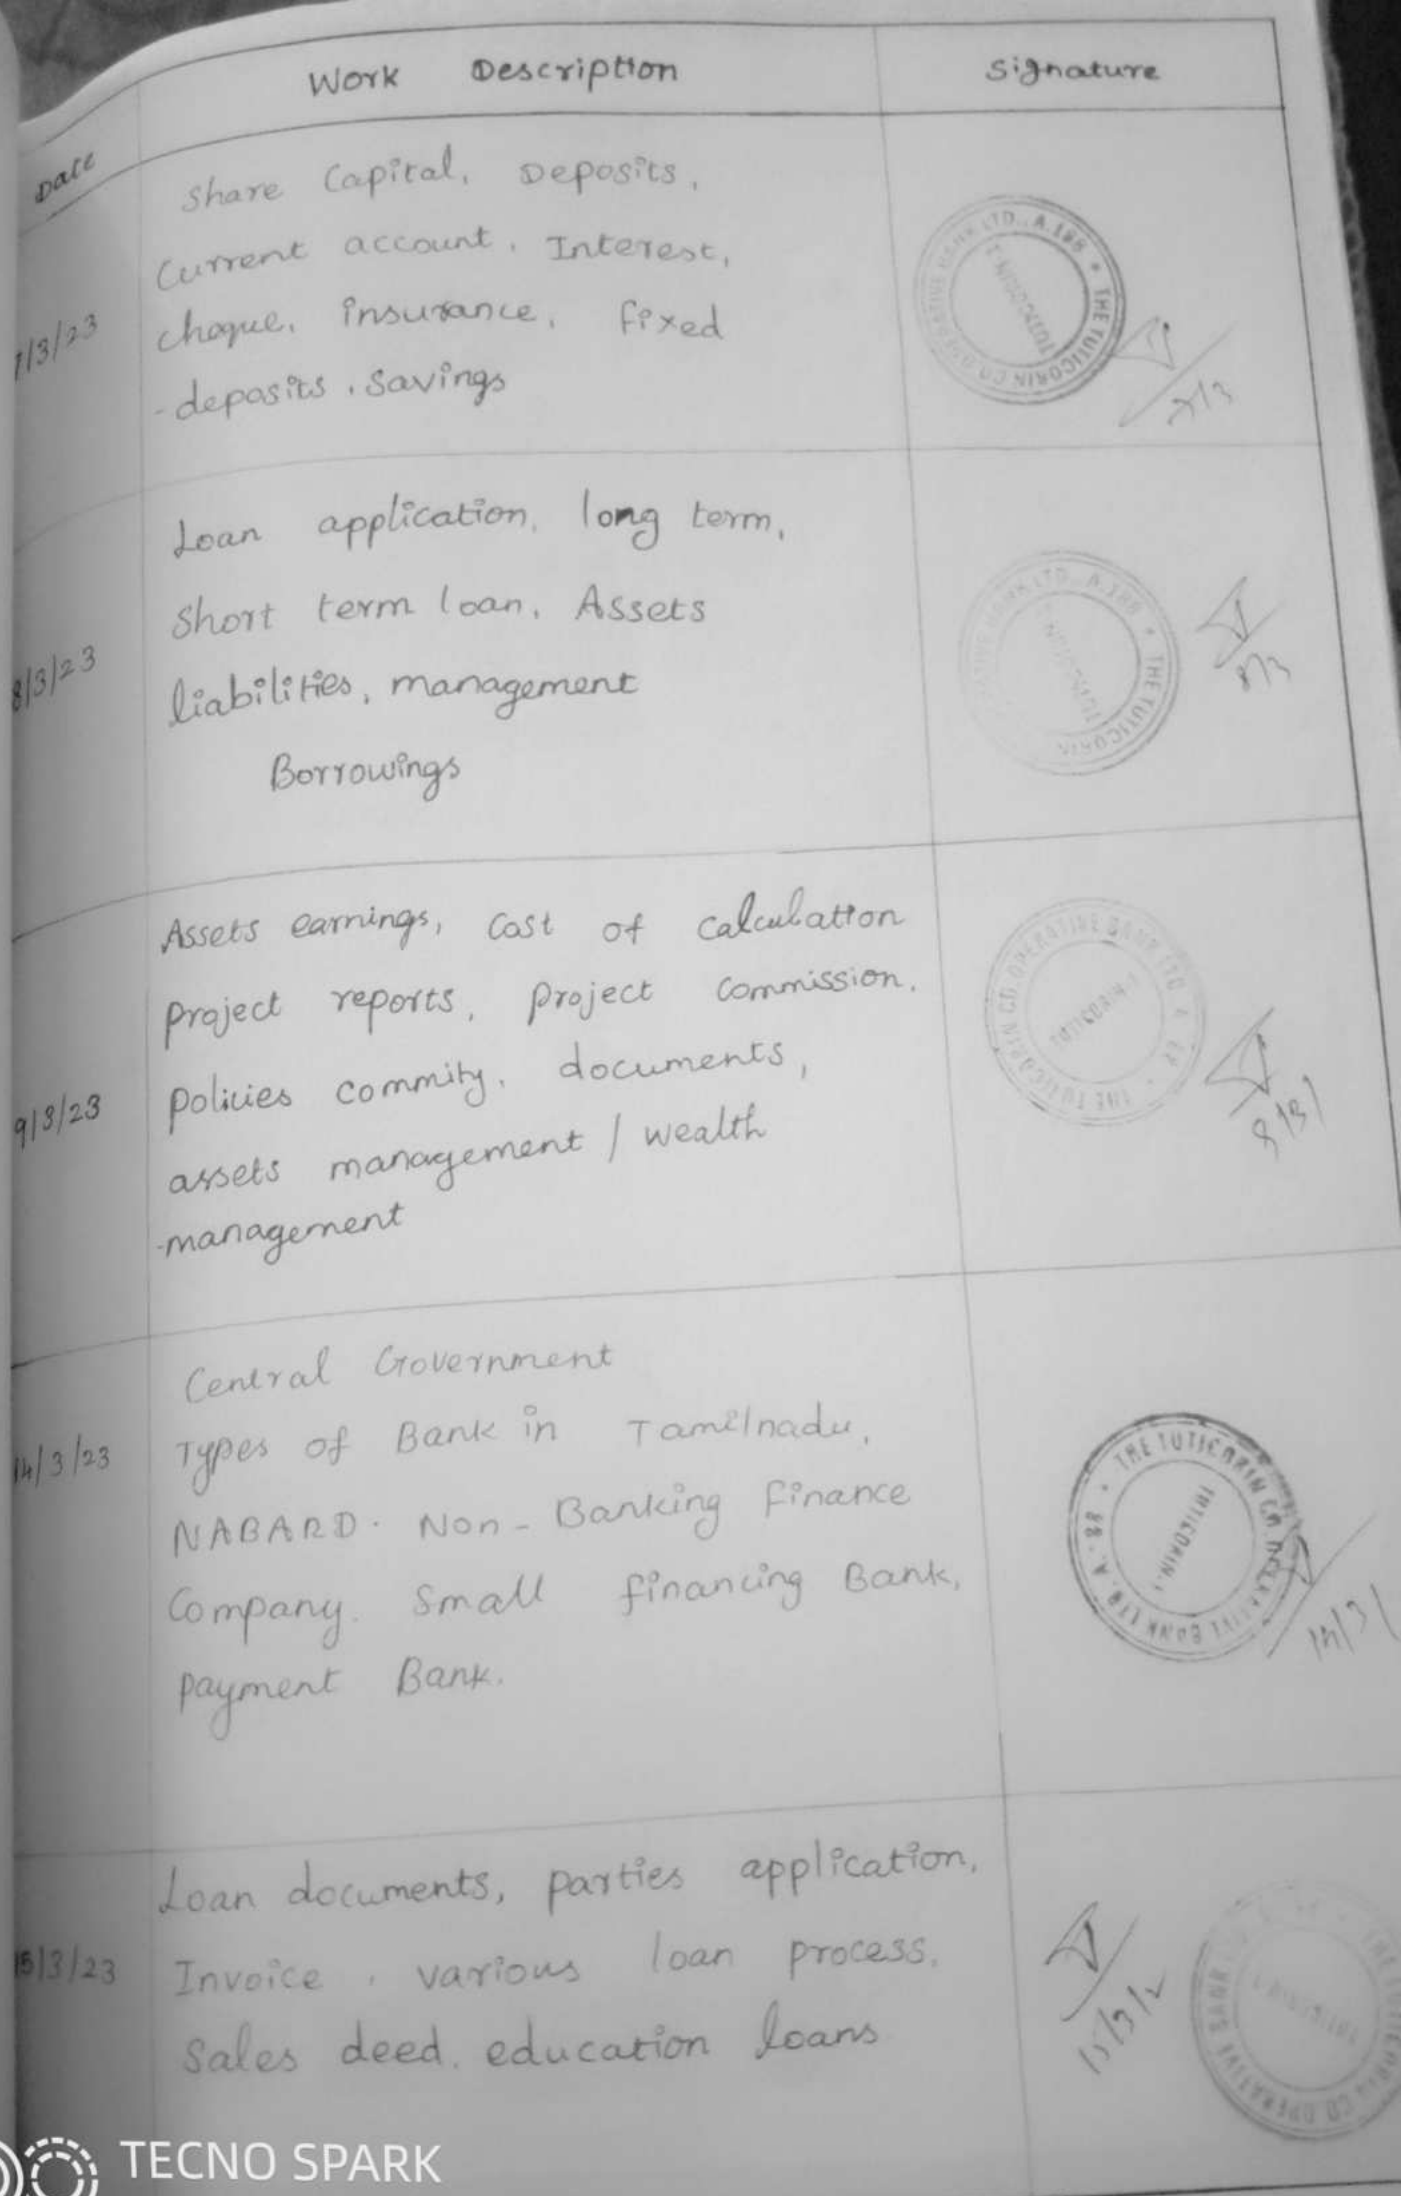 Date Work Description Signature
Share Capital, Deposits,
Current account, Interest,
7/3/23 cheque, insurance, fixed
-deposits, savings
7/3
THE TUTICORIN CO.OPERATIVE BANK LTD., A.188 * TUTICORIN-2
Loan application, long term,
Short term loan, Assets
8/3/23 liabilities, management
Borrowings
8/3
THE TUTICORIN BANK LTD., A.188 * TUTICORIN
Assets earnings, Cost of Calculation
Project reports, Project Commission,
9/3/23 Policies commity, documents,
assets management / wealth
-management
THE TUTICORIN CO.OPERATIVE BANK LTD. A TUTICORIN-1
Central Government
14/3/23 Types of Bank in Tamilnadu,
NABARD. Non-Banking Finance
Company. Small financing Bank,
payment Bank.
THE TUTICORIN CO.OPERATIVE BANK LTD. A.-88 * TUTICORIN-1
14/3/
Loan documents, parties application,
15/3/23 Invoice, various loan process,
Sales deed, education loans
15/3/2
THE TUTICORIN CO OPERATIVE BANK TUTICORIN-1
TECNO SPARK